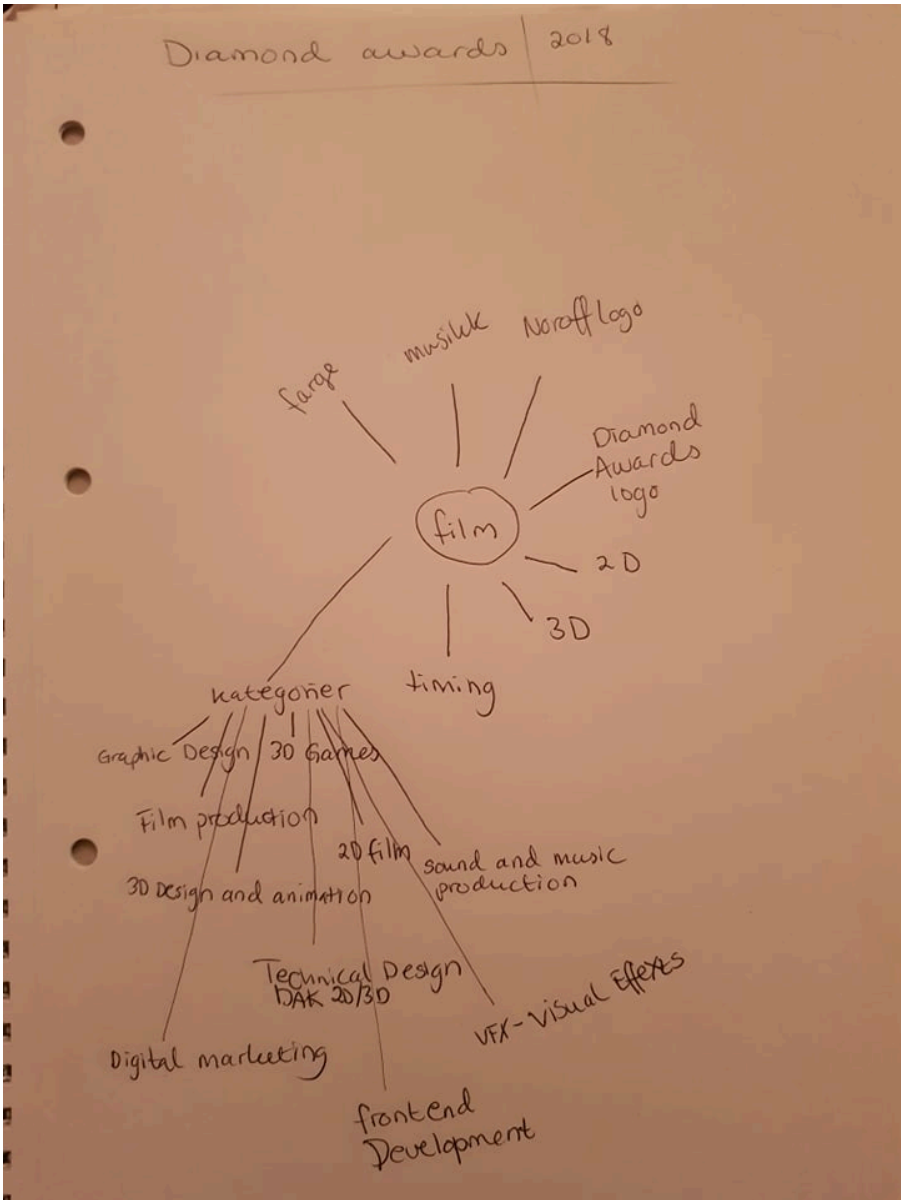 Diamond awards | 2018
farge
musikk
Noroff logo
Diamond
Awards
logo
film
2D
3D
timing
kategorier
Graphic Design
3D Games
Film production
2D film
sound and music
production
3D Design and animation
Technical Design
DAK 2D/3D
VFX - Visual Effexts
Digital marketing
frontend
Development